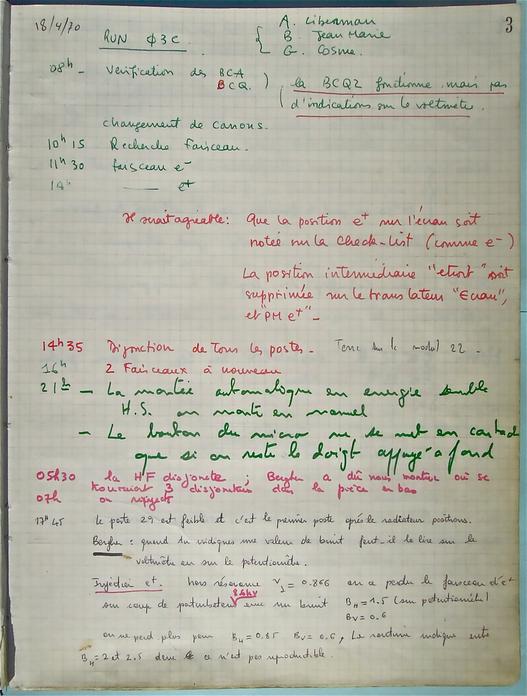 18/4/70
3
RUN Φ3C
A. Liberman
B. Jean Marie
G. Cosme
08h - Verification des BCA
BCQ.
la BCQ2 fonctionne mais pas
d'indications sur le voltmètre.
changement de canons.
10h15 Recherche Faisceau.
11h30 faisceau e-
14h —— e+
Il serait agréable: Que la position e+ sur l'écran soit
notée sur la check-list (comme e-)
La position intermédiaire "etroit" soit
supprimée sur le translateur "Ecran",
et "PM e+" -
14h35 Disjonction de tous les postes - sur le 22 -
16h 2 Faisceaux à nouveau
21h - La montée automatique en energie semble
H.S. on monte en manuel
- Le bouton du micro ne se met en contact
que si on reste le doigt appuyé à fond
05h30 la HF disjoncte ; Bergher a dû nous montrer où se
trouvaient 3 disjoncteurs dans la pièce en bas
07h on
17h45 le poste 29 est faible et c'est le premier poste après le radiateur positons.
Bergher : quand tu indiques une valeur de faut-il la lire sur le
voltmètre ou sur le potentiomètre.
Injection e+. hors résonance = 0.866 on a perdu le faisceau d'e+
un coup de perturbateur 84kV avec un BH = 1.5 (sur potentiomètre)
BV = 0.6
on ne perd plus pour BH = 0.85 BV = 0.6, Le indique entre
BH = 2 et 2.5 donc ce n'est pas reproductible.